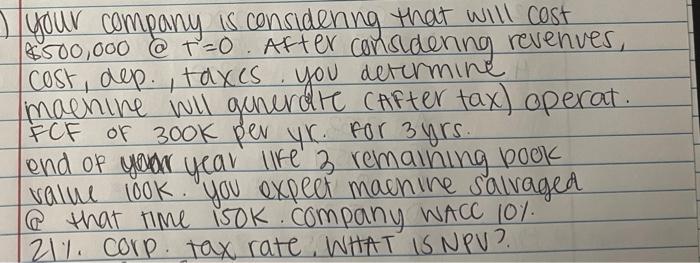 ) your company is considering that will cost
$500,000 @ T=0. After considering revenues,
cost, dep., taxes. you determine
machine will generate (After tax) operat.
FCF OF 300K per yr. For 3 yrs.
end of year life 3 remaining book
value 100K. you expect machine salvaged
@ that time 150K. company WACC 10%.
21%. corp. tax rate. WHAT IS NPV?